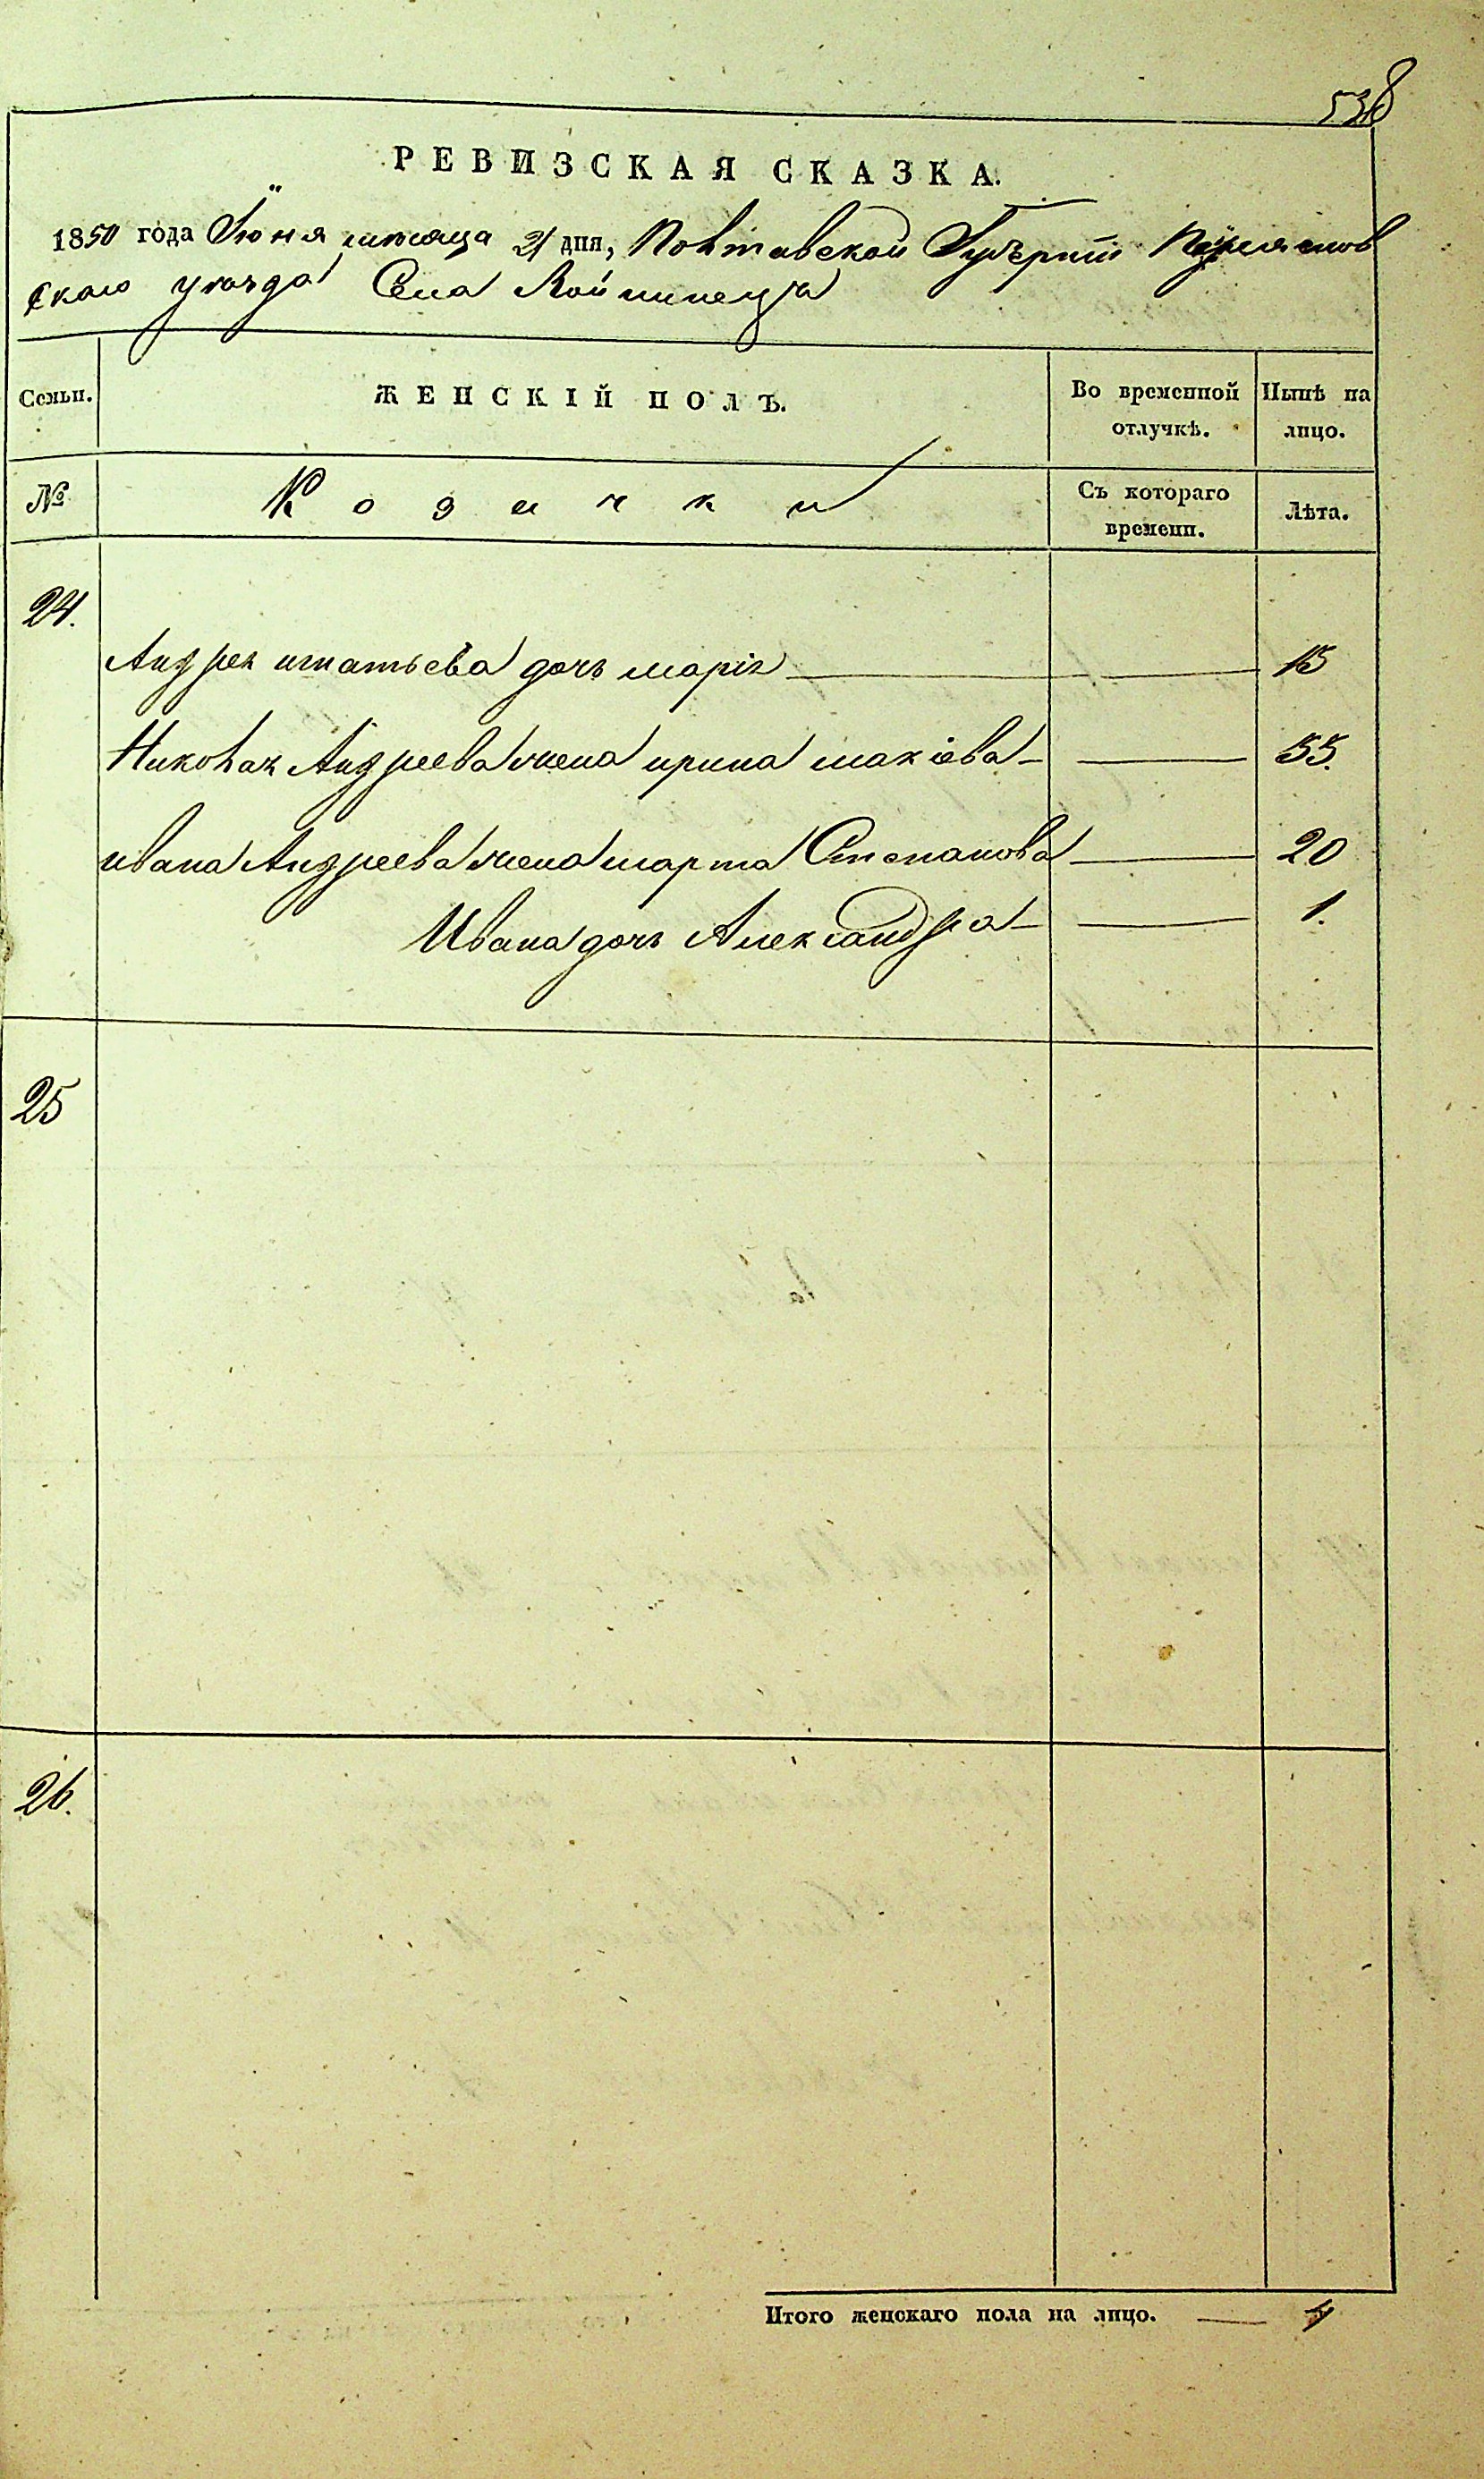 538
РЕВИЗСКАЯ СКАЗКА.
1850 года Іюня месяца 21 дня, Полтавской Губерніи Переяслов
скаго уезда Села Войтинца
Семьи.
ЖЕНСКІЙ ПОЛЪ.
Во временной отлучкѣ.
Нынѣ на лицо.
№
Козачки
Съ котораго времени.
Лѣта.
24.
Андрея игнатьева дочь марія 15
Николая Андреева жена ирина макіева 55.
ивана Андреева жена марта Степанова 20
Ивана дочь Александра 1.
25
26.
Итого женскаго пола на лицо. 4